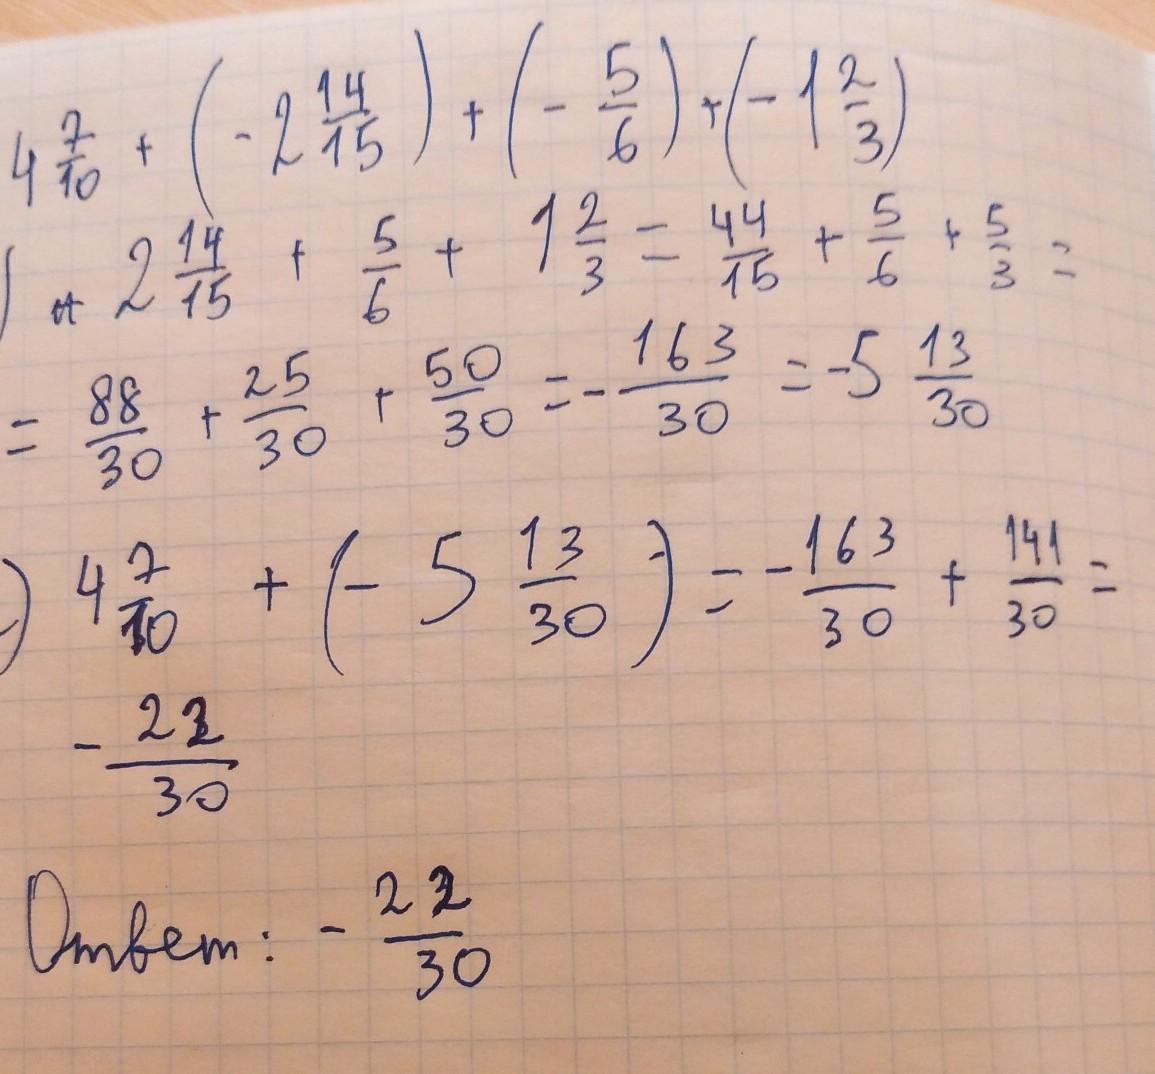 4 7/10 + (-2 14/15) + (- 5/6) + (-1 2/3)
) + 2 14/15 + 5/6 + 1 2/3 = 44/15 + 5/6 + 5/3 =
= 88/30 + 25/30 + 50/30 = - 163/30 = -5 13/30
) 4 7/10 + (- 5 13/30) = - 163/30 + 141/30 =
- 22/30
Ответ: - 22/30